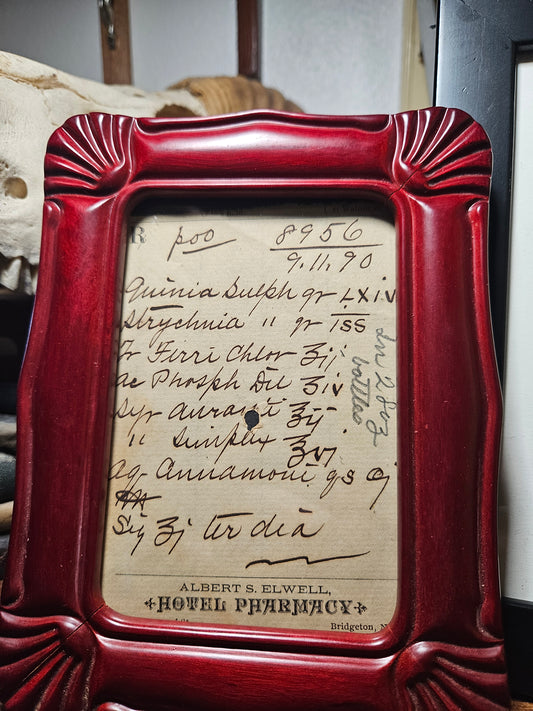 R poo 8956
9.11.90
Quinia Sulph gr LXiv
Strychnia " gr iss
Tr Ferri Chlor ℥ij
ac Phosph Dil ℥iv
Syr aurant ℥ij
" Simplex ℥vj
Aq Cinnamoni qs Oj
Sig ʒj ter dia
in 2 8 oz
bottles
ALBERT S. ELWELL,
HOTEL PHARMACY
Bridgeton, N